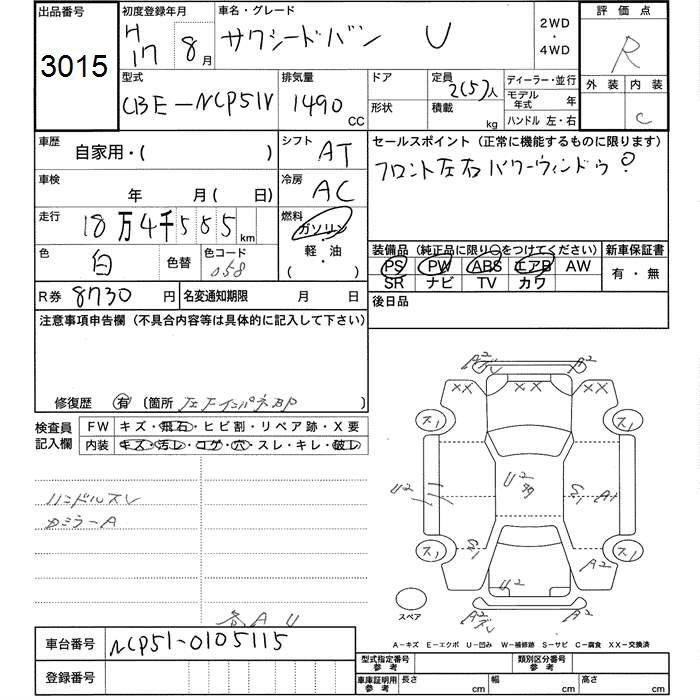 出品番号 初度登録年月 車名・グレード 2WD・4WD 評価点
3015 H17 8月 サクシードバン U R
型式 排気量 ドア 定員 ディーラー・並行 外装 内装
CBE-NCP51V 1490 CC 2(5)人 モデル年式 年 C
形状 積載 kg ハンドル 左・右
車歴 自家用・( ) シフト AT セールスポイント (正常に機能するものに限ります)
フロント左右パワーウィンドウ?
車検 年 月( 日) 冷房 AC
走行 18万4千555km 燃料 ガソリン・軽油 ( )
色 白 色替 色コード 058
装備品 (純正品に限り○をつけてください) 新車保証書
PS PW ABS エアB AW 有・無
SR ナビ TV カワ
R券 8730円 名変通知期限 月 日 後日品
注意事項申告欄 (不具合内容等は具体的に記入して下さい)
修復歴 有 (箇所 左Fインパネ )
検査員記入欄 FW キズ・飛石・ヒビ割・リペア跡・X要
内装 キズ・汚レ・コゲ・穴・スレ・キレ・破レ
ハンドルスレ
カミラーA
各A U
A2 A2
XX XX
ス1 ス1
U2 U2 S1 A1
ス1 S1 ス1
U2 A2
スペア A2 A2
A-キズ E-エクボ U-凹み W-補修跡 S-サビ C-腐食 XX-交換済
車台番号 NCP51-0105115
登録番号
型式指定番号 参考 類別区分番号 参考
車庫証明用 参考 長さ cm 幅 cm 高さ cm